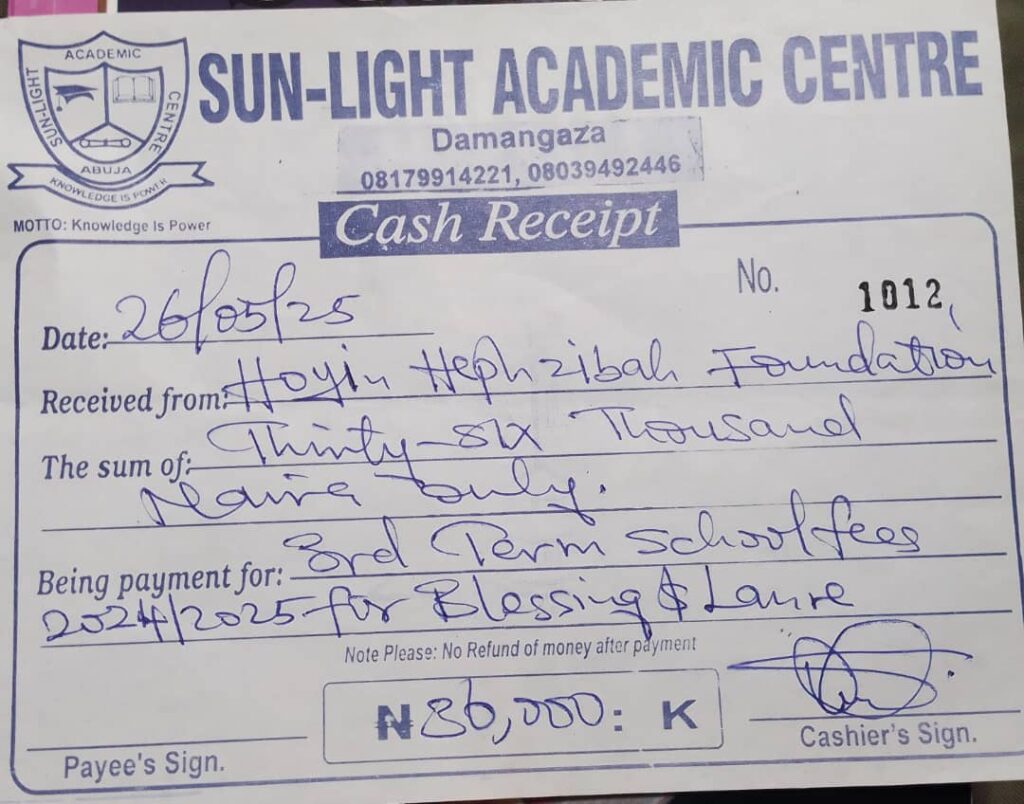 ACADEMIC
SUN-LIGHT
CENTRE
ABUJA
KNOWLEDGE IS POWER
MOTTO: Knowledge Is Power
SUN-LIGHT ACADEMIC CENTRE
Damangaza
08179914221, 08039492446
Cash Receipt
No. 1012
Date: 26/05/25
Received from: Hoyin Hephzibah Foundation
The sum of: Thirty-six Thousand
Naira only.
Being payment for: 3rd Term School fees
2024/2025 for Blessing & Laure
Note Please: No Refund of money after payment
₦36,000: K
Payee's Sign.
Cashier's Sign.